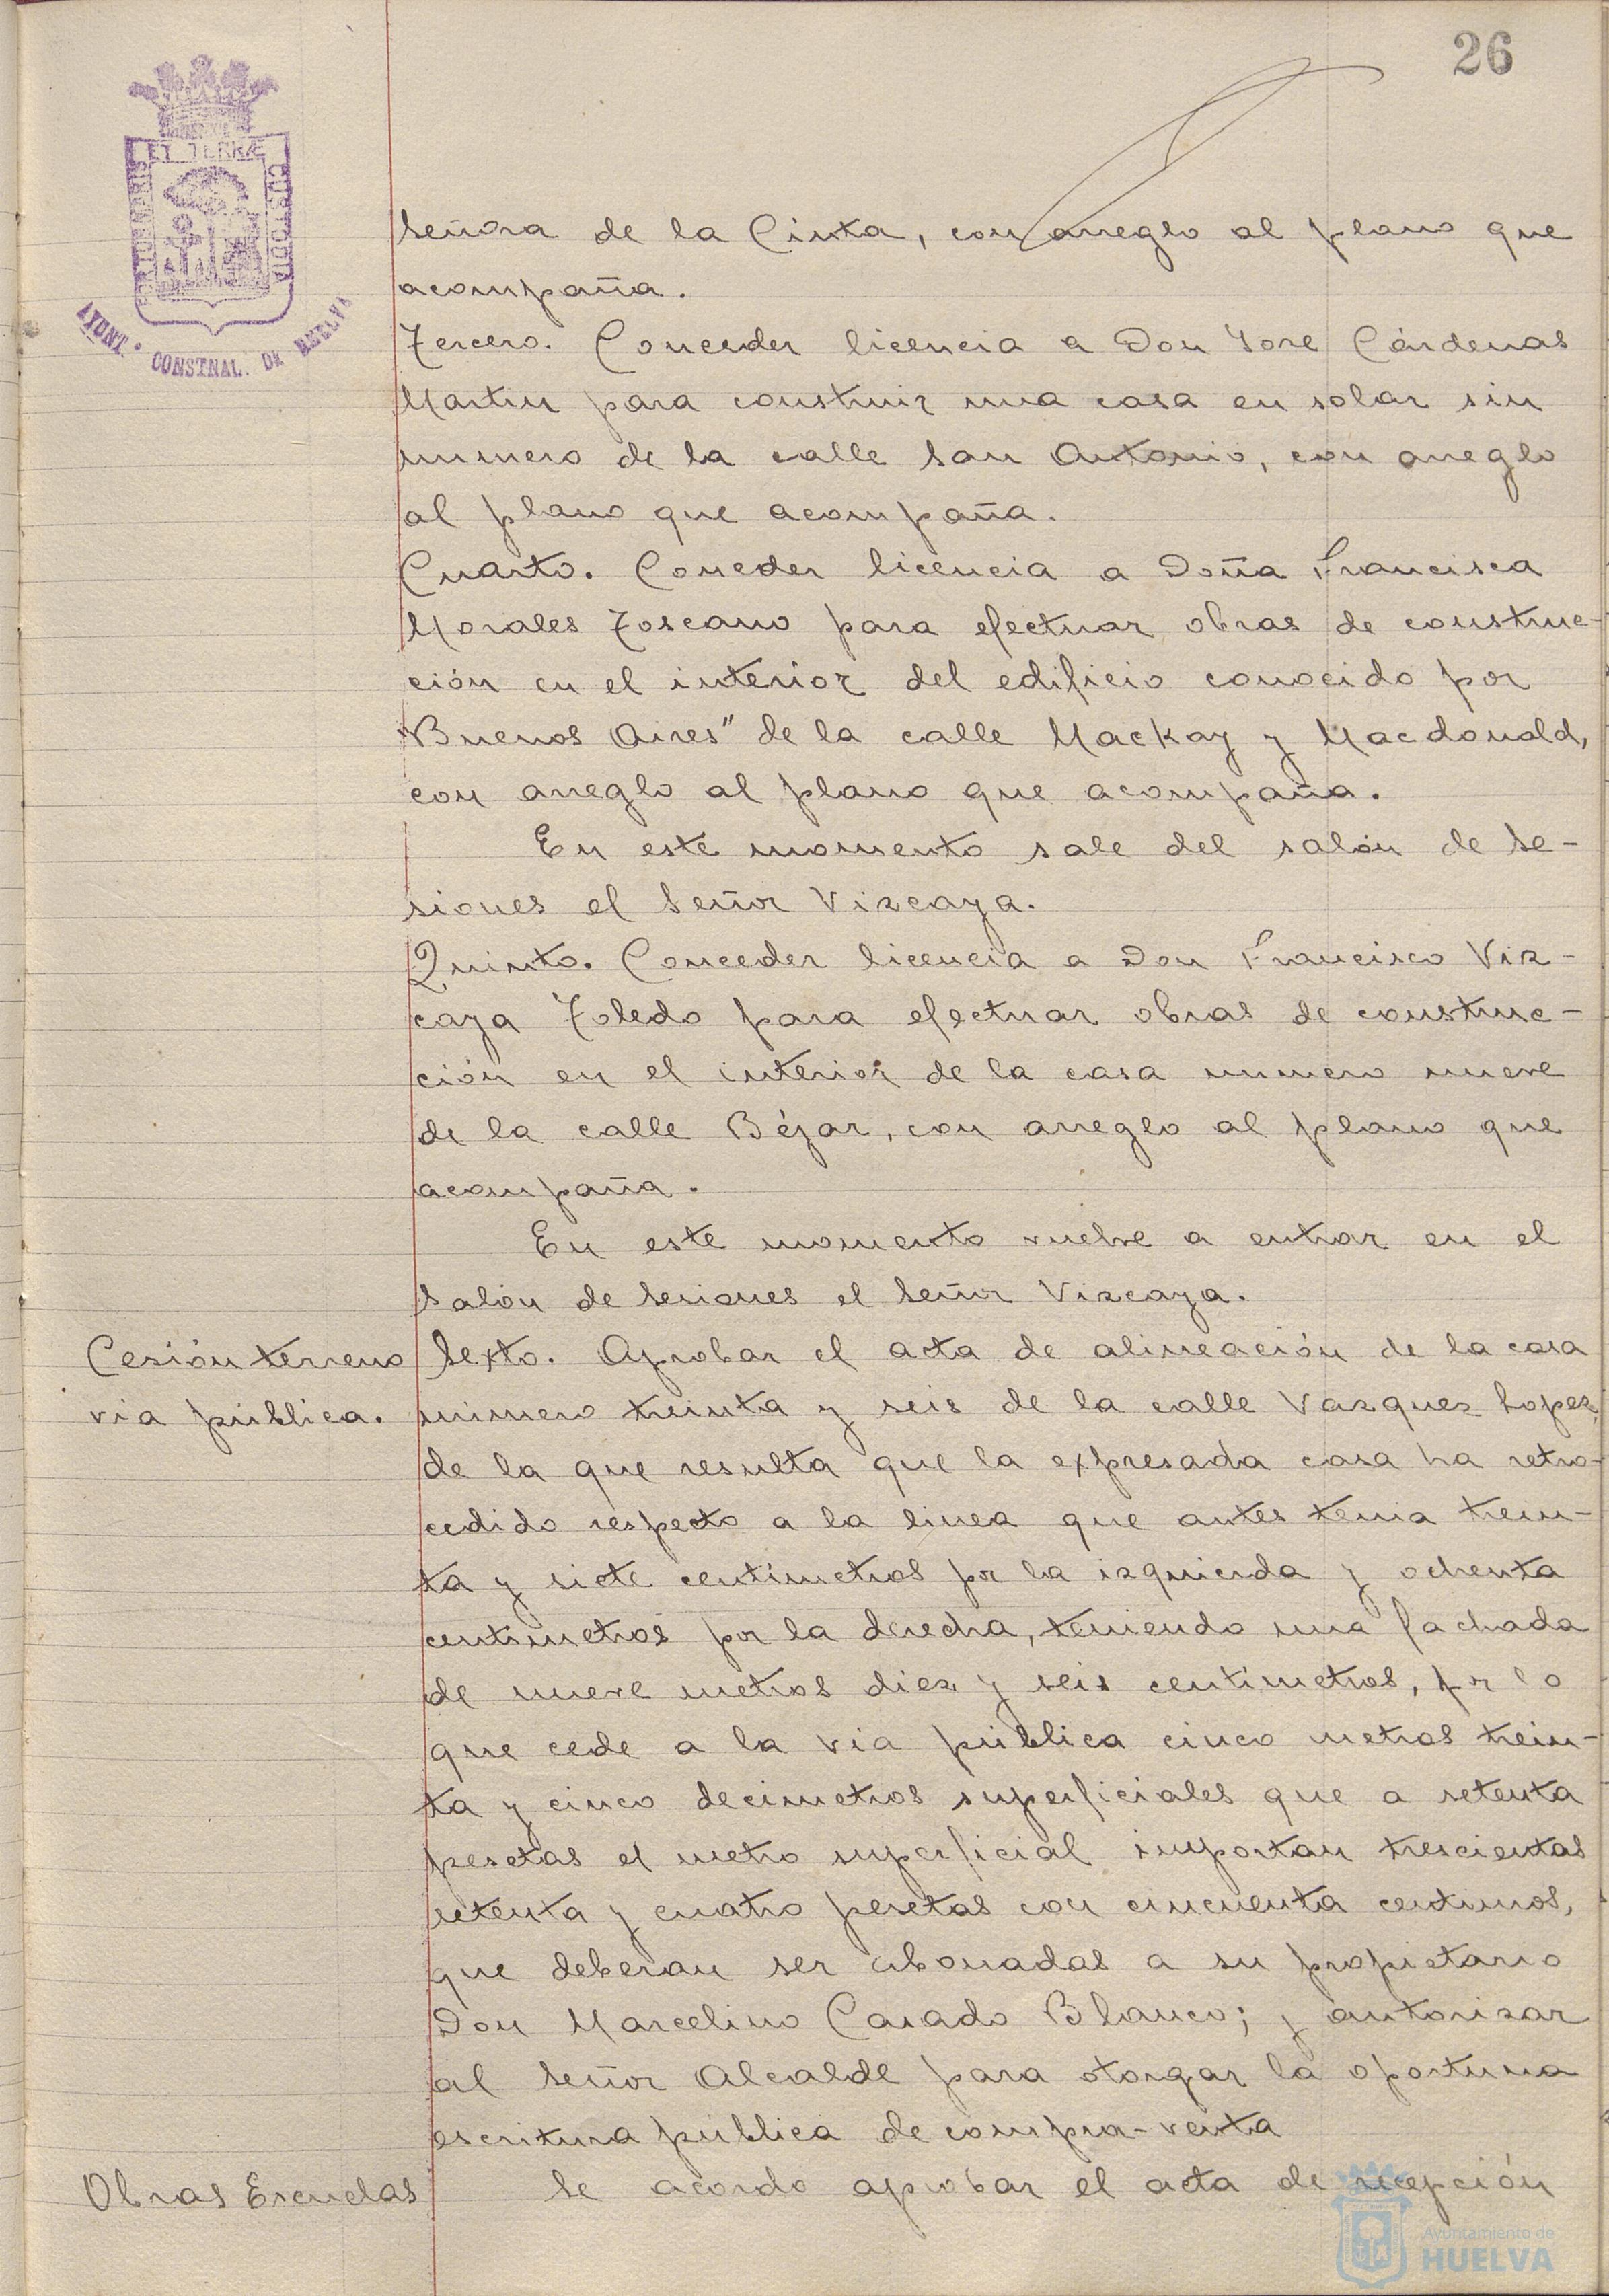 26
PORTUS MARIS
ET TERRÆ
CUSTODIA
AYUNT.º CONSTNAL. DE HUELVA
Señora de la Cinta, con arreglo al plano que
acompaña.
Tercero. Conceder licencia a Don José Cárdenas
Martin para construir una casa en solar sin
numero de la calle San Antonio, con arreglo
al plano que acompaña.
Cuarto. Conceder licencia a Doña Francisca
Morales Toscano para efectuar obras de construc-
ción en el interior del edificio conocido por
"Buenos Aires" de la calle Mackay y Macdonald,
con arreglo al plano que acompaña.
En este momento sale del salón de Se-
siones el Señor Vizcaya.
Quinto. Conceder licencia a Don Francisco Viz-
caya Toledo para efectuar obras de construc-
ción en el interior de la casa numero nueve
de la calle Béjar, con arreglo al plano que
acompaña.
En este momento vuelve a entrar en el
Salón de Sesiones el Señor Vizcaya.
Cesión terreno
via pública.
Sexto. Aprobar el acta de alineación de la casa
número treinta y seis de la calle Vazquez Lopez,
de la que resulta que la expresada casa ha retro-
cedido respecto a la linea que antes tenia trein-
ta y siete centímetros por la izquierda y ochenta
centimetros por la derecha, teniendo una fachada
de nueve metros diez y seis centímetros, por lo
que cede a la via pública cinco metros trein-
ta y cinco decimetros superficiales que a setenta
pesetas el metro superficial importan trescientas
setenta y cuatro pesetas con cincuenta centimos,
que deberan ser abonadas a su propietario
Don Marcelino Casado Blanco; y autorizar
al Señor Alcalde para otorgar la oportuna
escritura pública de compra-venta
Obras Escuelas
Se acordo aprobar el acta de recepción
Ayuntamiento de
HUELVA